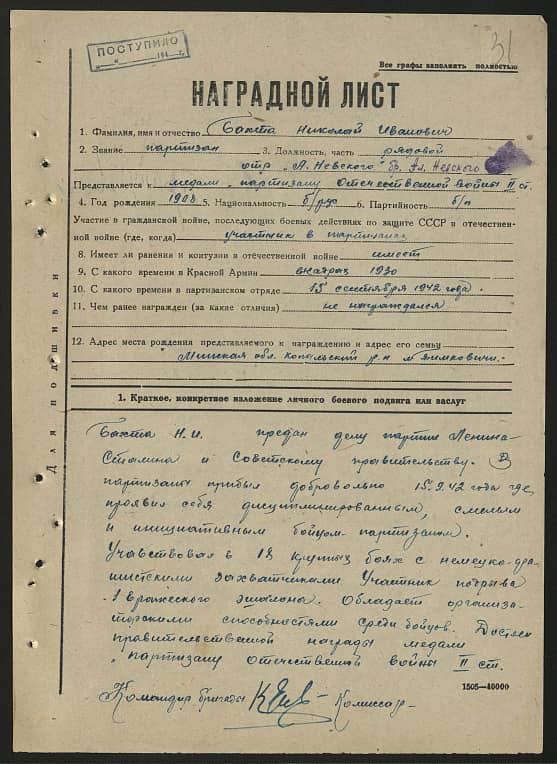 ПОСТУПИЛО
31
Все графы заполнять полностью
НАГРАДНОЙ ЛИСТ
1. Фамилия, имя и отчество Бахта Николай Иванович
2. Звание партизан 3. Должность, часть рядовой
отр "А. Невского" бр. Ал. Невского
Представляется к медали "партизану Отечественной войны II ст.
4. Год рождения 1908 5. Национальность б/рус 6. Партийность б/п
Участие в гражданской войне, последующих боевых действиях по защите СССР и отечествен-
ной войне (где, когда) участник в партизанке
8. Имеет ли ранения и контузии в отечественной войне имеет
9. С какого времени в Красной Армии 1930
10. С какого времени в партизанском отряде 15 сентября 1942 года.
11. Чем ранее награжден (за какие отличия) не награждался
12. Адрес места рождения представляемого к награждению и адрес его семьи
Минская обл. Копыльский р-н м Тимковичи.
Для подшивки
1. Краткое, конкретное изложение личного боевого подвига или заслуг
Бахта Н.И. предан делу партии Ленина-
Сталина и Советскому правительству. В
партизаны прибыл добровольно 15.9.42 года где,
проявил себя дисциплинированным, смелым
и инициативным бойцом-партизаном.
Учавствовал в 18 крупных боях с немецко-фа-
шистскими захватчиками Участник подрыва
1 вражеского эшалона. Обладает организа-
торскими способностями среди бойцов. Достоен
правительственной награды медали
"партизану отечественной войны II ст.
1505—40000
Командир бригады Комиссар